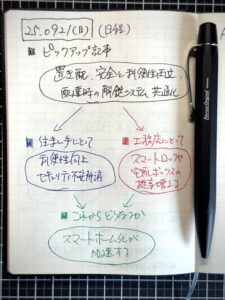 25.0921(日)（日経）
■ピックアップ記事
置き配、安全と利便性両立
配達時の解錠システム共通化
■住まい手にとって
利便性向上
セキュリティ不安解消
■工務店にとって
スマートロックや
宅配ボックスの
提案増える
■これからどうなるか
スマートホーム化が
加速する